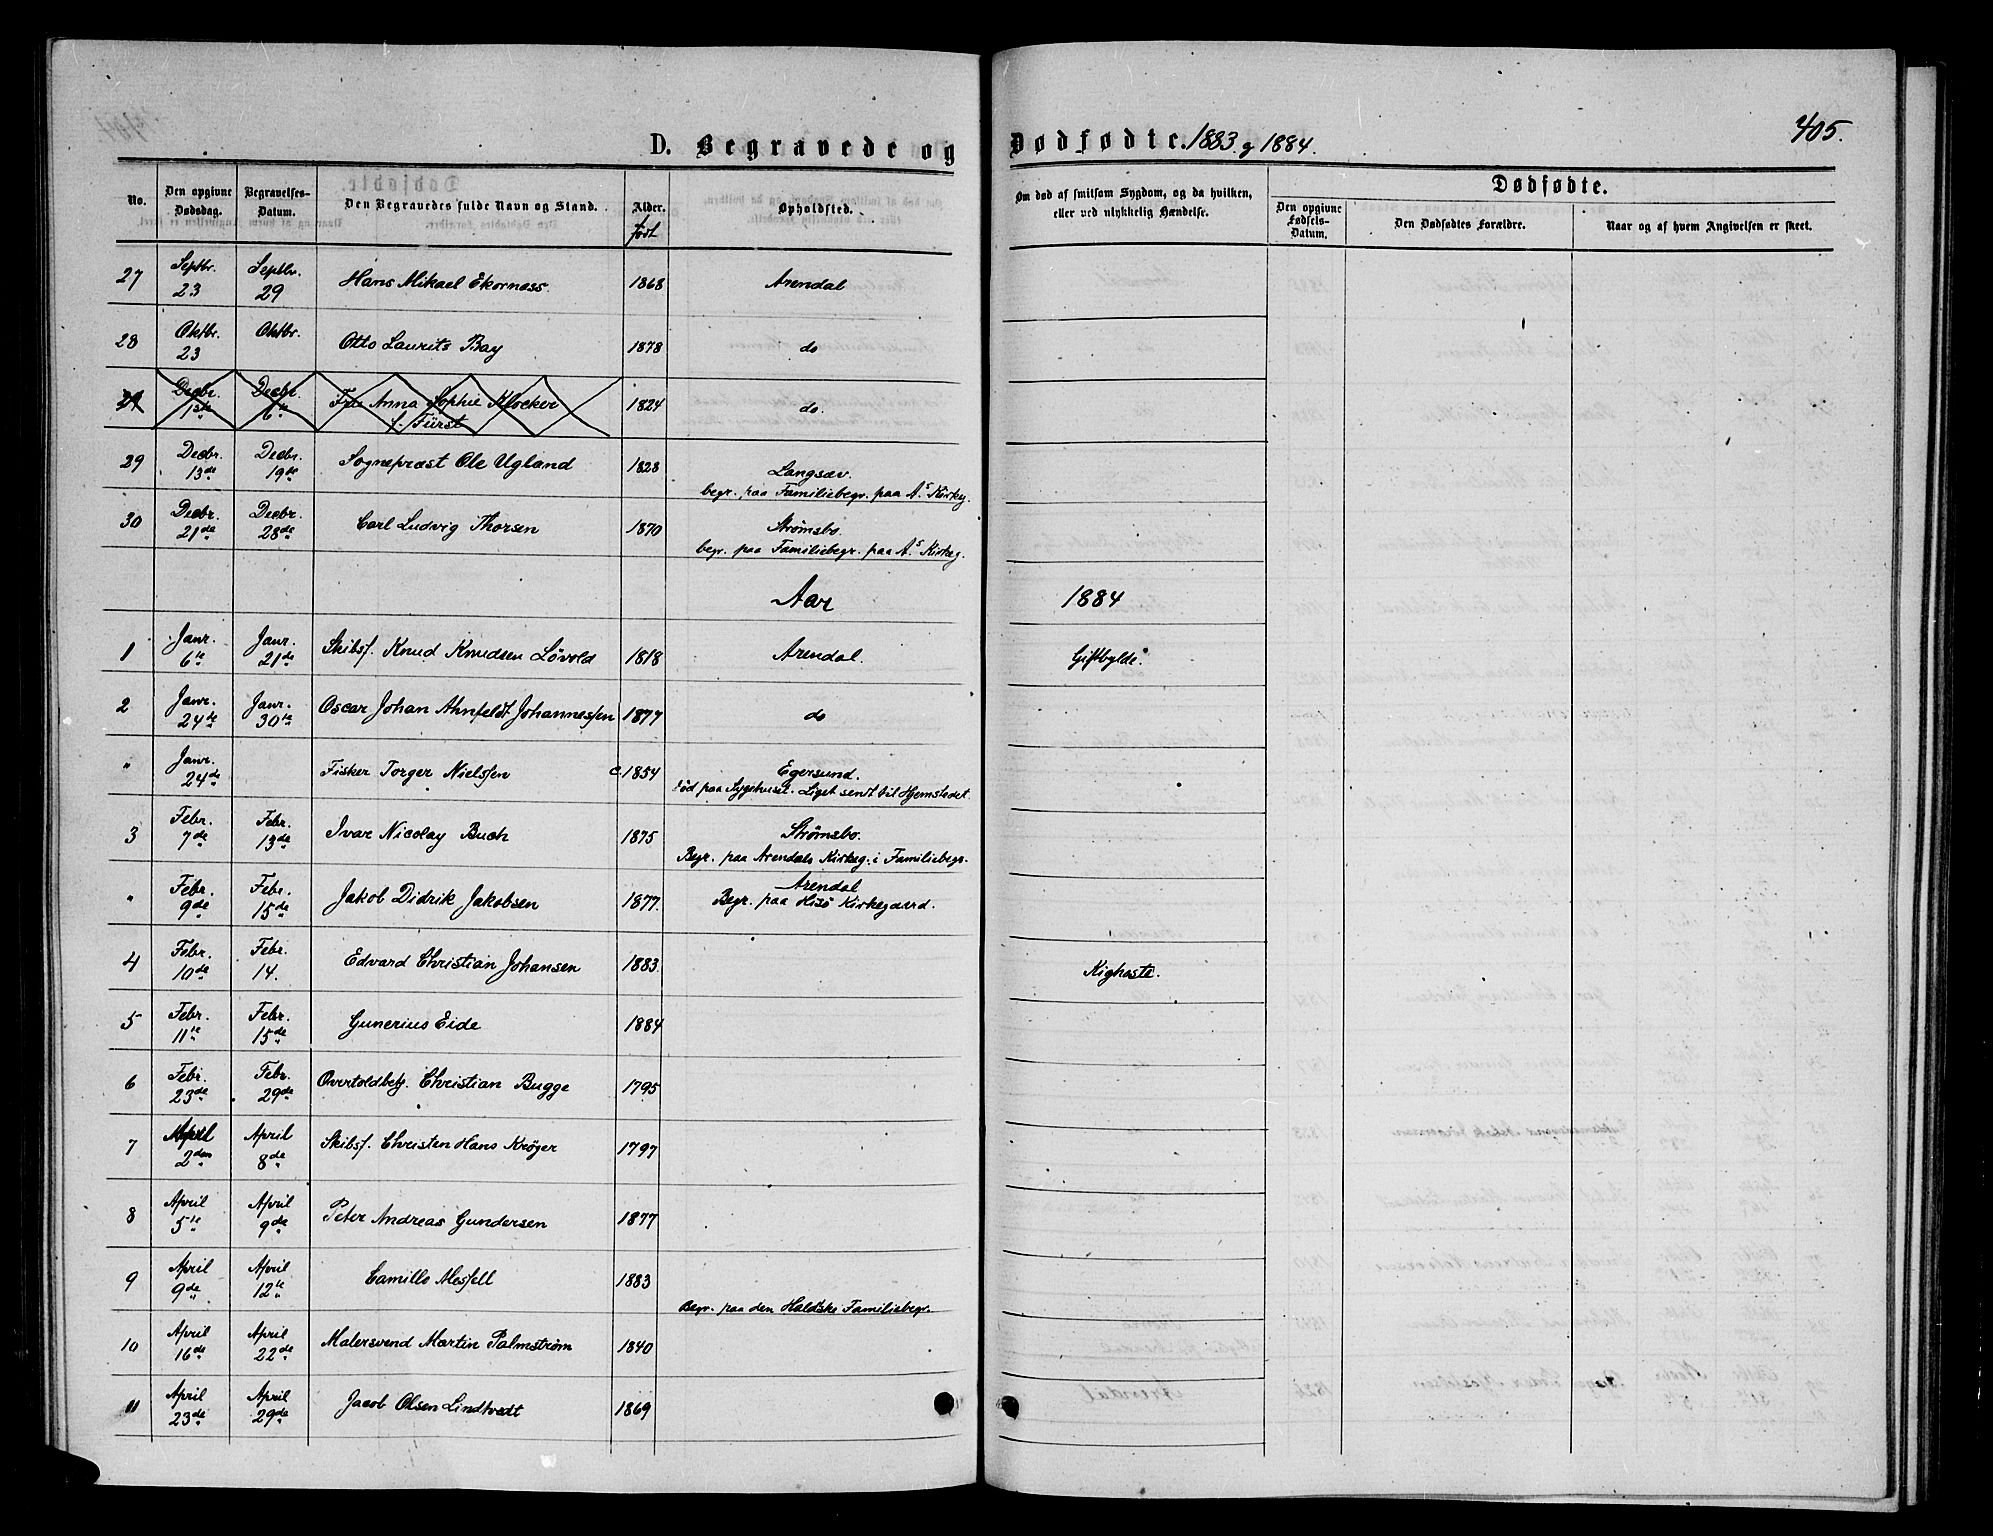 405.
D. Begravede og Dødfødte. 1883 og 1884.
No.
Den opgivne Dødsdag.
Begravelses-Datum.
Den Begravedes fulde Navn og Stand.
Alder. født
Opholdsted.
Om død af smitsom Sygdom, og da hvilken, eller ved ulykkelig Hændelse.
Dødfødte.
Den opgivne Fødsels-Datum.
Den Dødfødtes Forældre.
Naar og af hvem Angivelsen er skeet.
27 Septbr. 23 Septbr. 29 Hans Mikael Ekornass. 1868 Arendal
28 Oktbr. 23 Oktbr. Otto Laurits Bay 1878 do
29 Decbr. 1ste Decbr. 6te Frue Anna Sophie Klocker f. Fürst 1824 do.
29 Decbr. 13de Decbr. 19de Sognepræst Ole Ugland 1828 Langsæv.
begr. paa Familiebegr. paa A.s Kirkeg.
30 Decbr. 21de Decbr. 28de Carl Ludvig Thorsen 1870 Strømsbo.
begr. paa Familiebegr. paa A.s Kirkeg.
Aar 1884
1 Janr. 6te Janr. 21de Skibsf. Knud Knudsen Lövold 1818 Arendal. Giftbylde.
2 Janr. 24de Janr. 30te Oscar Johan Ahnfeldt Johannessen 1877 do
" Janr. 24de Fisker Torger Nielssen c. 1854 Egersund.
død paa Sygehuset. Liget sendt til Hjemstedet.
3 Febr. 7de Febr. 13de Ivar Nicolay Buch 1875 Strømsbo.
Begr. paa Arendals Kirkeg. i Familiebegr.
" Febr. 9de Febr. 15de Jakob Didrik Jakobsen 1877. Arendal
Begr. paa Hisö Kirkegaard.
4 Febr. 10de Febr. 14. Edvard Christian Johansen 1883. Kighoste.
5 Febr. 11te Febr. 15de Gunerius Eide 1884
6 Febr. 23de Febr. 29de Overtoldbetj. Christian Bugge 1795
7 April 2den April 8de Skibsf. Christen Hans Krøger 1797
8 April 5te April 9de Peter Andreas Gundersen 1877
9 April 9de April 12te Camillo Messell 1883
Begr. paa den Holdtske Familiebegr.
10 April 16de April 22de Malersvend Martin Palmstrøm 1840
11 April 23de April 29de Jacob Olsen Lindtvedt 1869